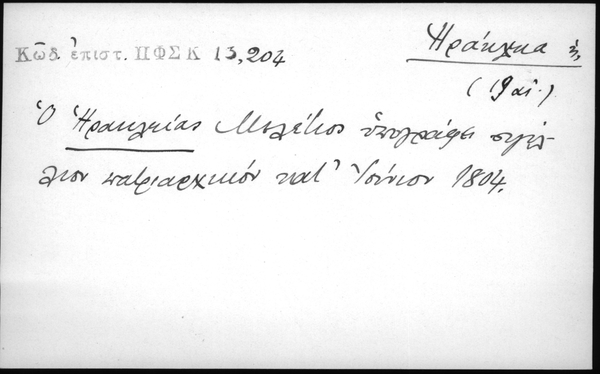 Κῶδ. ἐπιστ. ΠΦΣΚ 13,204
Ἡράκλεια ἡ,
(19 αἰ.)
Ὁ Ἡρακλείας Μελέτιος ὑπογράφει σιγίλ-
λιον πατριαρχικόν κατ' Ἰούνιον 1804.